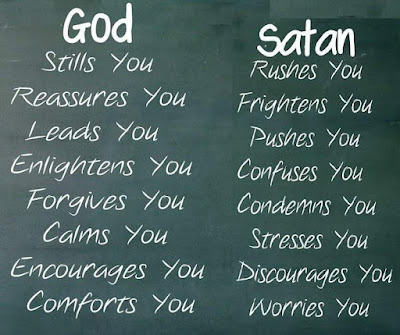 God
Stills You
Reassures You
Leads You
Enlightens You
Forgives You
Calms You
Encourages You
Comforts You
Satan
Rushes You
Frightens You
Pushes You
Confuses You
Condemns You
Stresses You
Discourages You
Worries You